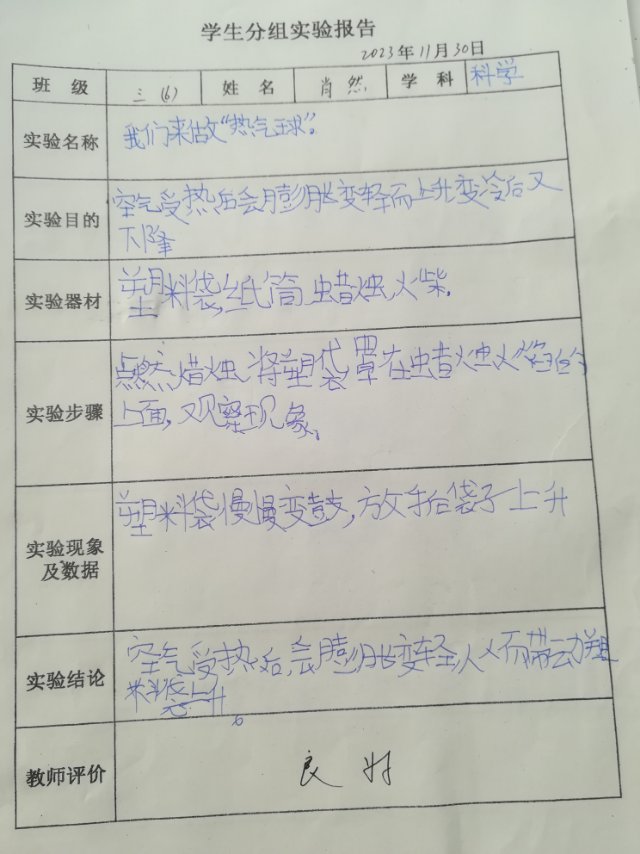 学生分组实验报告
2023年11月30日
班 级 三(6) 姓 名 肖然 学 科 科学
实验名称 我们来做“热气球”。
实验目的 空气受热后会膨胀变轻而上升变冷后又
下降
实验器材 塑料袋,纸筒,蜡烛,火柴.
实验步骤 点燃蜡烛,将塑袋罩在蜡烛火焰的
上面,观察现象。
实验现象
及数据 塑料袋慢慢变鼓,放手后袋子上升
实验结论 空气受热后,会膨胀变轻,从而带动塑
料袋上升。
教师评价 良好